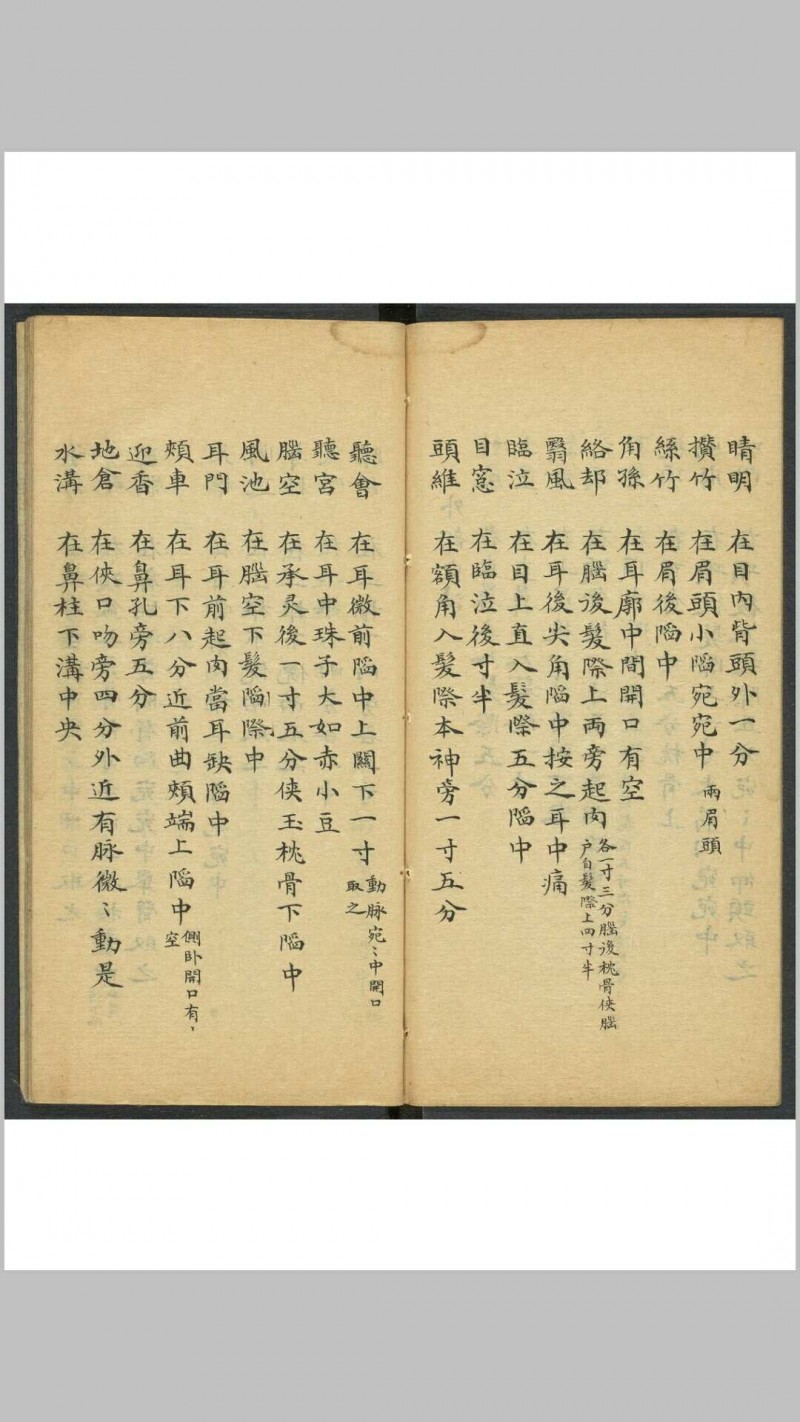 睛明 在目內眥頭外一分
攅竹 在眉頭小陷宛宛中 兩眉頭
絲竹 在眉後陷中
角孫 在耳廓中間開口有空
絡却 在腦後髮際上両旁起肉 各一寸三分腦後枕骨俠腦户自髮際上四寸半
翳風 在耳後尖角陷中按之耳中痛
臨泣 在目上直入髮際五分陷中
目窓 在臨泣後寸半
頭維 在額角入髮際本神旁一寸五分
聽會 在耳微前陷中上關下一寸 動脉宛〻中開口取之
聽宮 在耳中珠子大如赤小豆
腦空 在承灵後一寸五分俠玉枕骨下陷中
風池 在腦空下髮陷際中
耳門 在耳前起肉當耳缺陷中
頰車 在耳下八分近前曲頰端上陷中 側卧開口有、空
迎香 在鼻孔旁五分
地倉 在俠口吻旁四分外近有脉微〻動是
水溝 在鼻柱下溝中央